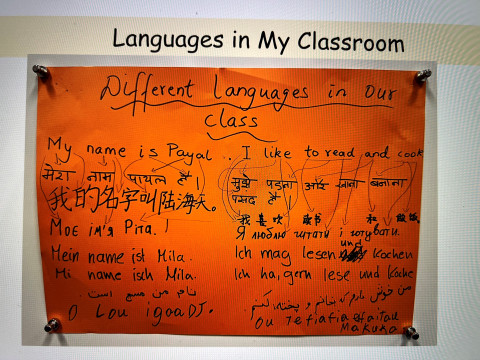 Languages in My Classroom
Different Languages in Our
class
My name is Payal .. I like to read and cook
मेरा नाम पायल है।
मुझे पढ़ना और खाना बनाना
पसंद है।
我的名字叫陆海天。
Моє ім'я Ріта. !
Я люблю читати і готувати.
Mein name ist Mila.
Ich mag lesen und kochen
Mi name isch Mila.
Ich ha, gern lese und koche
نام من مسیح است.
من خوش دارم که بخوانم و پخته کنم.
O Lou igoa DJ.
Ou Te fiafia faitau
Makuka